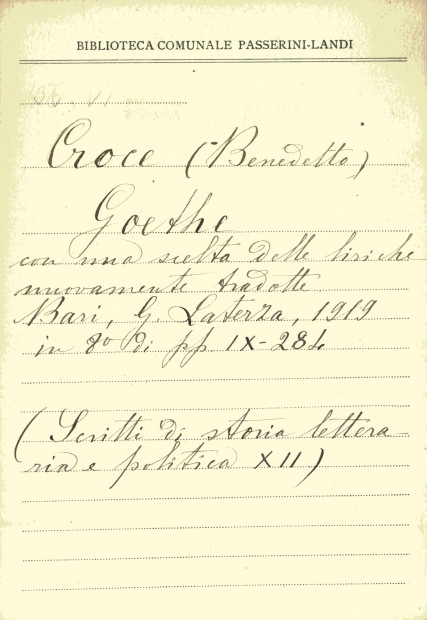 BIBLIOTECA COMUNALE PASSERINI-LANDI
Croce (Benedetto)
Goethe
con una scelta delle liriche
nuovamente tradotte.
Bari, G. Laterza, 1919
in 8° di pp. IX-284
(Scritti di storia lettera-
ria e politica XII)